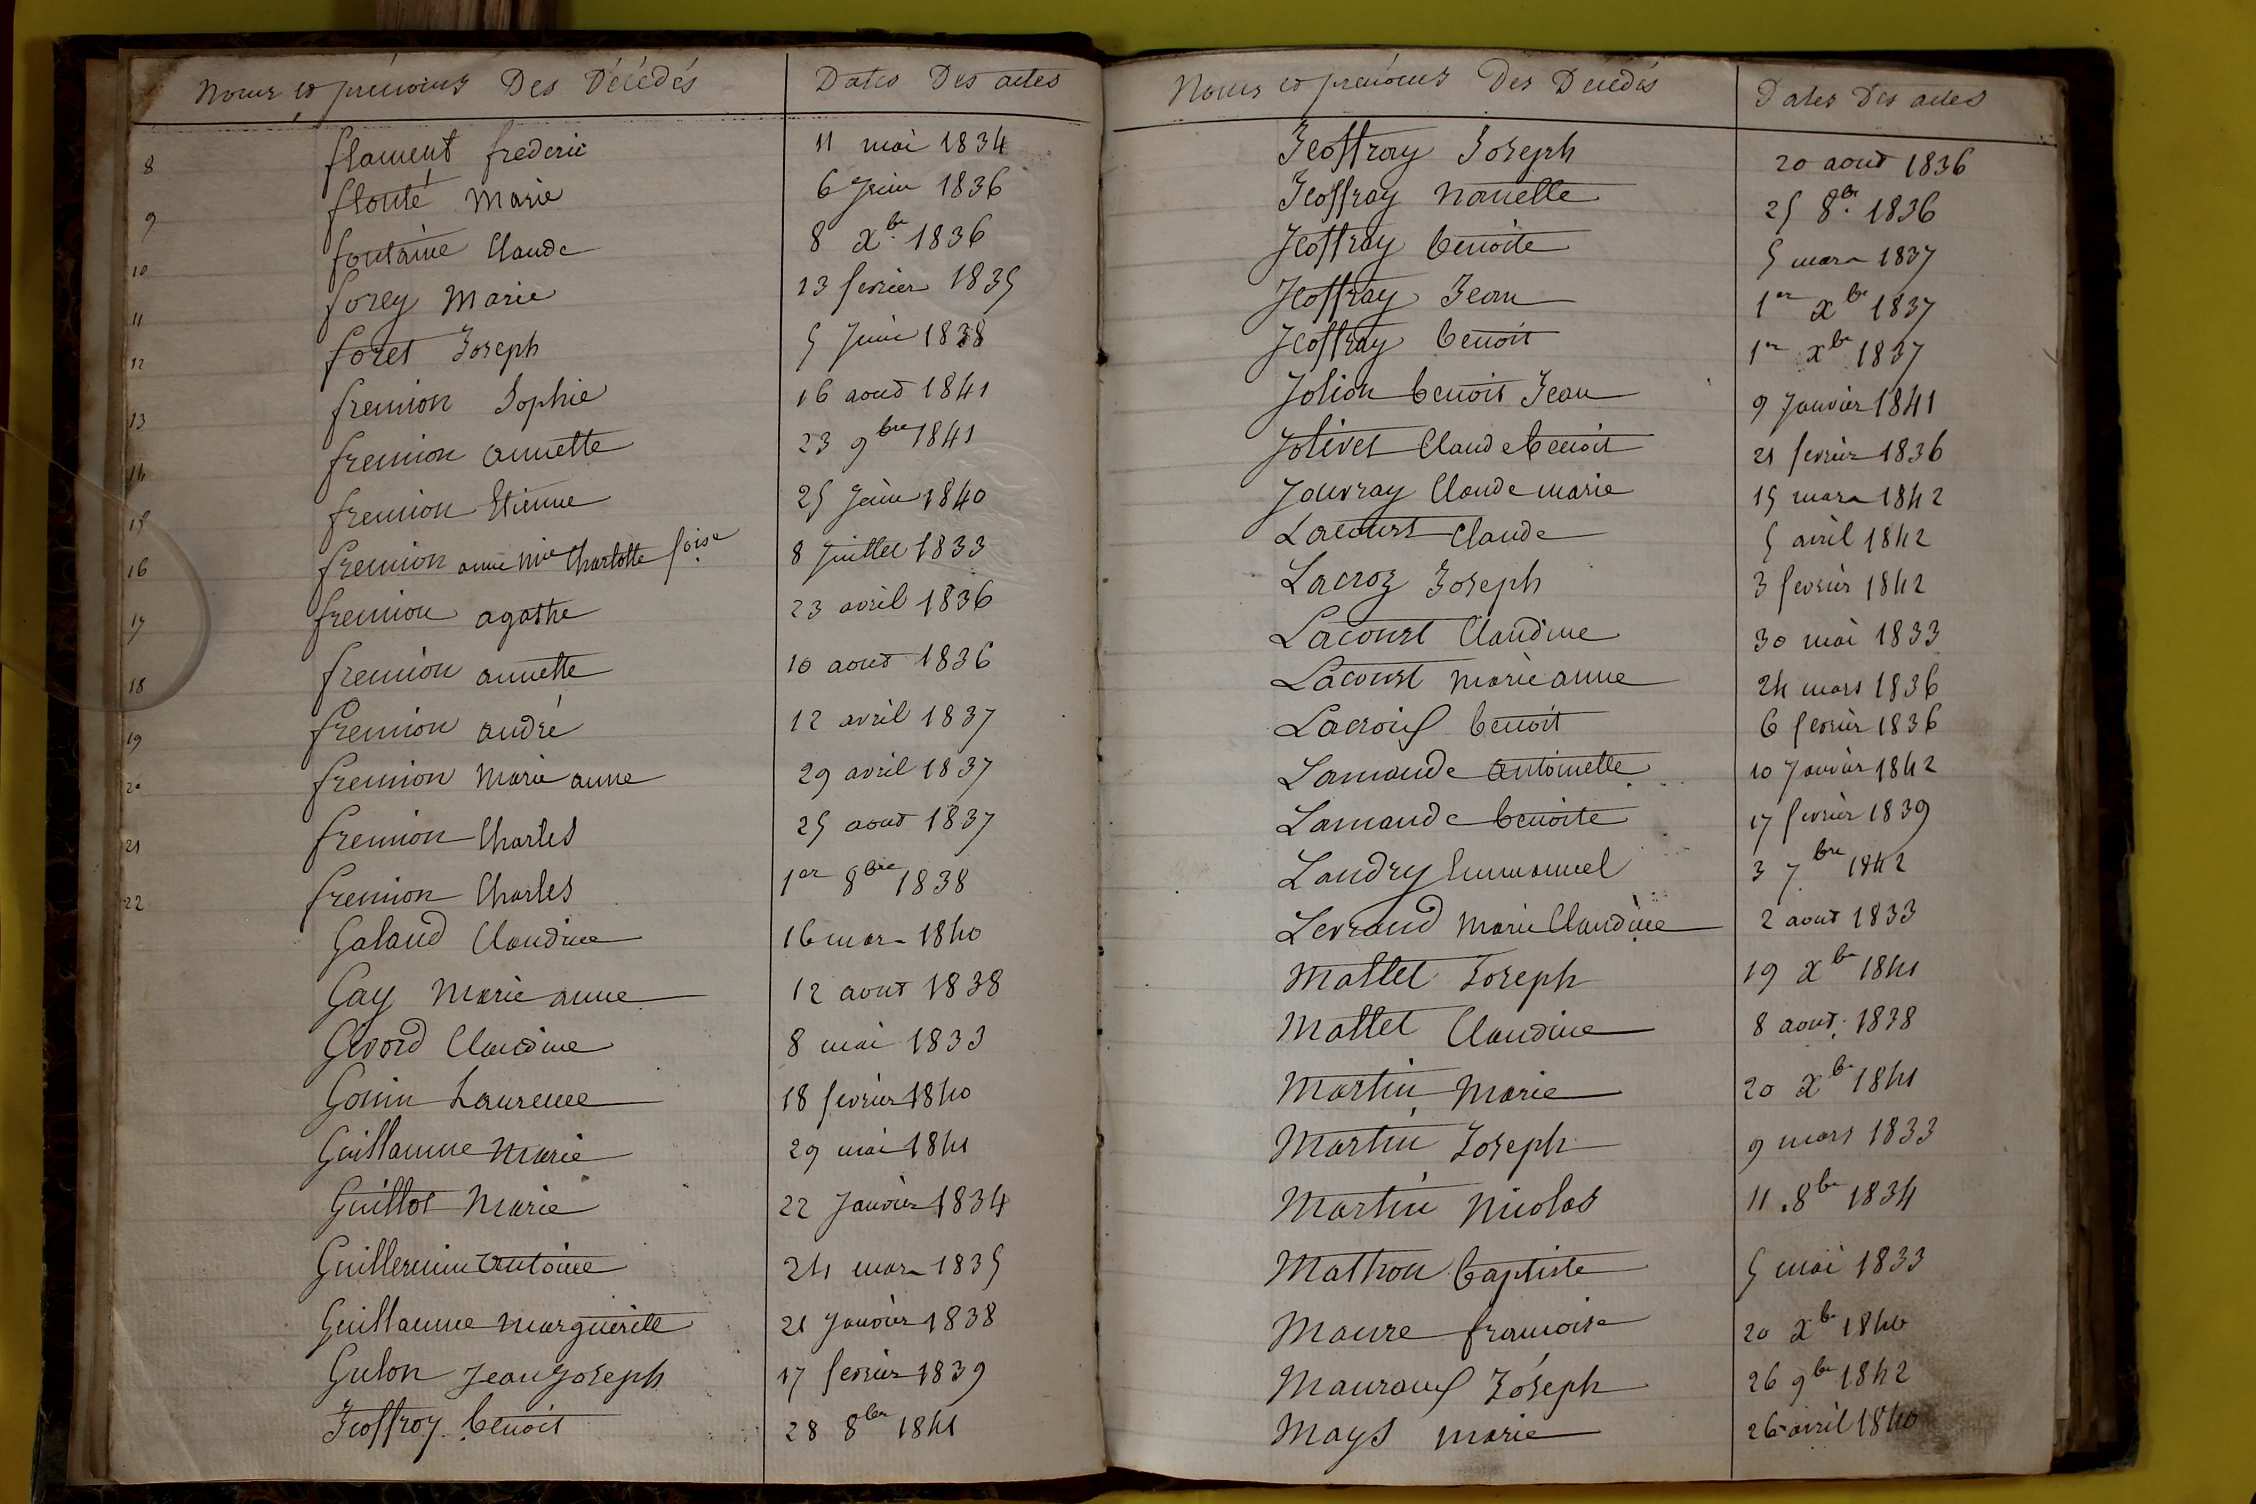 Noms et prénoms Des Décédés Dates Des actes
8 flament frederic 11 mai 1834
9 flouté Marie 6 Juin 1836
10 fontaine Claude 8 Xbre 1836
11 forey Marie 13 fevrier 1835
12 foret Joseph 5 Juin 1838
13 fremion Sophie 16 aout 1841
14 fremion annette 23 9bre 1841
15 fremion Etienne 25 Juin 1840
16 fremion anne Mie Charlotte foise 8 Juillet 1833
17 fremion agathe 23 avril 1836
18 fremion annette 10 aout 1836
19 fremion andré 12 avril 1837
20 fremion Marie anne 29 avril 1837
21 fremion Charles 25 aout 1837
22 fremion Charles 1er 8bre 1838
Galand Claudine 16 mars 1840
Gay Marie anne 12 aout 1838
Givord Claudine 8 mai 1833
Gonin Laurence 18 fevrier 1840
Guillaume Marie 29 mai 1841
Guillot Marie 22 Janvier 1834
Guillermin antoine 24 mars 1835
Guillaume Marguerite 21 Janvier 1838
Gulon Jean Joseph 17 fevrier 1839
Jeoffroy Benoit 28 8bre 1841
Noms et prénoms Des Décédés Dates Des actes
Jeoffray Joseph 20 aout 1836
Jeoffray Nanette 25 8bre 1836
Jeoffray Benoite 5 mars 1837
Jeoffray Jean 1er Xbre 1837
Jeoffray Benoit 1er Xbre 1837
Jolion Benoit Jean 9 Janvier 1841
Jolivet Claude Benoit 21 fevrier 1836
Jouvray Claude marie 15 mars 1842
Lacourt Claude 5 avril 1842
Lacroz Joseph 3 fevrier 1842
Lacourt Claudine 30 mai 1833
Lacourt Marie anne 24 mars 1836
Lacroix Benoit 6 fevrier 1836
Lamande Antoinette 10 Janvier 1842
Lamande Benoite 17 fevrier 1839
Landry Emmanuel 3 7bre 1842
Levrand Marie Claudine 2 aout 1833
Mallet Joseph 19 Xbre 1841
Mallet Claudine 8 aout 1838
Martin Marie 20 Xbre 1841
Martin Joseph 9 mars 1833
Martin Nicolas 11 8bre 1834
Mathon Baptiste 5 mai 1833
Maure francoise 20 Xbre 1840
Mauroux Joseph 26 9bre 1842
Mays marie 26 avril 1840